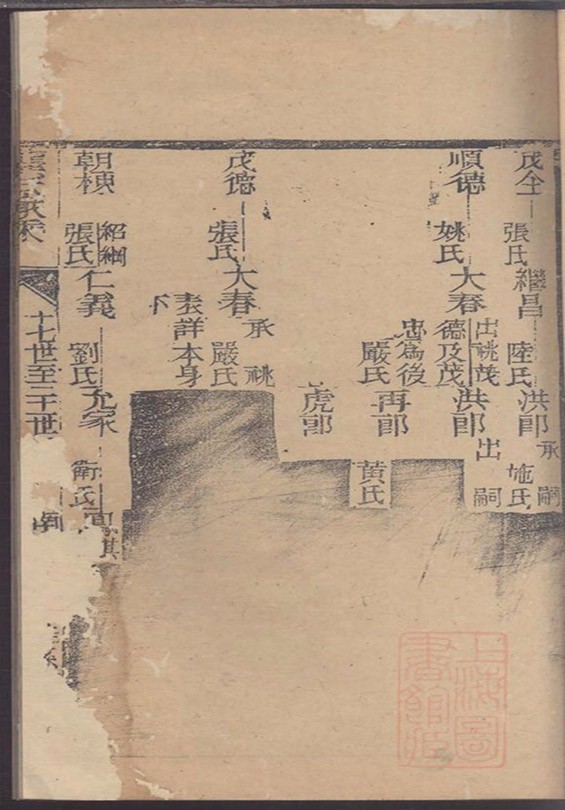 茂全
張氏
繼昌
陸氏
洪郎
承嗣
施氏
順德
姚氏
大春
出祧茂
德及茂
忠為後
嚴氏
洪郎
出嗣
再郎
黄氏
虎郎
茂德
張氏
大春
承祧
嚴氏
表詳本身
下
朝棟
紹綱
張氏
仁義
劉氏
允家
衛氏
十七世至二十世
上海圖書館藏